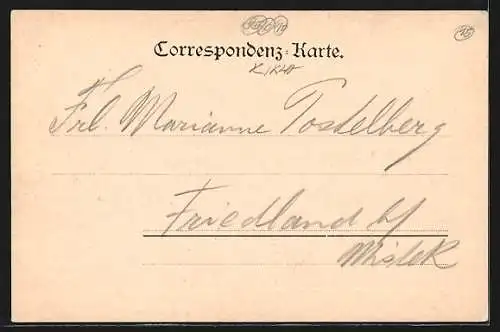 Correspondenz-Karte.
Frl. Marianne Postelberg
Friedland b/
Mistek
15